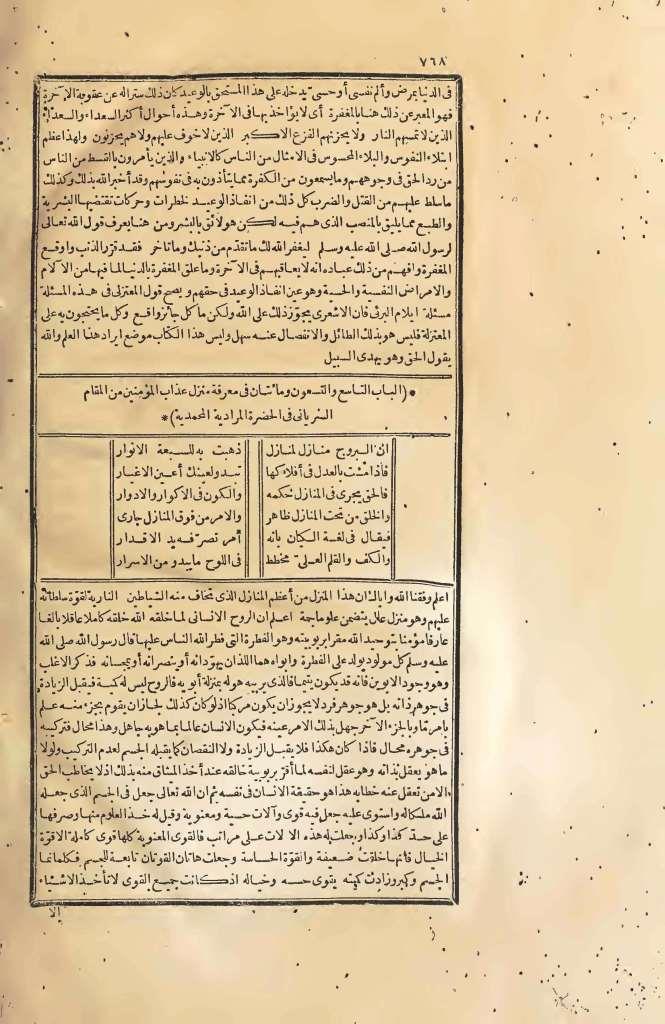 ٧٦٨
فى الدنيا بمرض وألم نفسى أو حسى يدخله على هذا المستحق بالوعيد كان ذلك سترا له عن عقوبة الآخرة
فهو المعبر عن ذلك هنا بالمغفرة أى لا يؤاخذ بها فى الآخرة وهذه أحوال أكثر السعداء والسعداء
الذين لا تمسهم النار ولا يحزنهم الفزع الاكبر الذين لا خوف عليهم ولا هم يحزنون ولهذا عظم
ابتلاء النفوس والبلاء المحسوس فى الامثال من الناس كالانبياء والذين يأمرون بالقسط من الناس
من رد الحق فى وجوههم وما يسمعون من الكفرة مما يتأذون به فى نفوسهم وقد أخبر الله بذلك وكذلك
ما سلط عليهم من القتل والضرب كل ذلك من انفاذ الوعيد لخطرات وحركات تقتضيها البشرية
والطبع مما يليق بالمنصب الذى هم فيه لكن هو لائق بالبشر ومن هنا يعرف قول الله تعالى
لرسول الله صلى الله عليه وسلم ليغفر الله لك ما تقدم من ذنبك وما تأخر فقد قرر الذنب وأوقع
المغفرة وافهم من ذلك عباده انه لا يعاقبهم فى الآخرة وما علق المغفرة بالدنيا لما فيها من الآلام
والامراض النفسية والحسية وهو عين انفاذ الوعيد فى حقهم ويصح قول المعتزلى فى هذه المسئلة
مسئلة ايلام البرئ فان الاشعرى يجوّز ذلك على الله ولكن ما كل جائز واقع وكل ما يحتجون به على
المعتزلة فليس هو بذلك الطائل والانفصال عنه سهل وليس هذا الكتاب موضع ايراد هذا العلم والله
يقول الحق وهو يهدى السبيل
* (الباب التاسع والتسعون ومائتان فى معرفة منزل عذاب المؤمنين من المقام
السريانى فى الحضرة المرادية المحمدية) *
ان البروج منازل لمنازل ذهبت به للسبعة الانوار
فاذا مشت بالعدل فى أفلاكها تبدو لعينك أعين الاغيار
فالحق يجرى فى المنازل حكمه والكون فى الاكوار والادوار
والخلق من تحت المنازل ظاهر والامر من فوق المنازل جارى
فيقال فى لغة الكيان بانه أمر تصرّفه يد الاقدار
والكف والقلم العلىّ مخطط فى اللوح ما يبدو من الاسرار
اعلم وفقنا الله واياك ان هذا المنزل من أعظم المنازل الذى تخاف منه الشياطين النارية لقوة سلطانه
عليهم وهو منزل عال يتضمن علوما جمة اعلم ان الروح الانسانى لما خلقه الله خلقه كاملا عاقلا بالغا
عارفا مؤمنا بتوحيد الله مقرا بربوبيته وهو الفطرة التى فطر الله الناس عليها قال رسول الله صلى الله
عليه وسلم كل مولود يولد على الفطرة وابواه هما اللذان يهوّدانه أو ينصرانه أو يمجسانه فذكر الاغلب
وهو وجود الابوين فانه قد يكون يتيما فالذى يربيه هو له بمنزلة أبويه فالروح ليس له كمية فيقبل الزيادة
فى جوهر ذاته بل هو جوهر فرد لا يجوز ان يكون مركبا اذ لو كان كذلك لجاز ان يقوم بجزء منه علم
بامر ما وبالجزء الآخر جهل بذلك الامر عينه فيكون الانسان عالما بما هو به جاهل وهذا محال فتركيبه
فى جوهره محال فاذا كان هكذا فلا يقبل الزيادة ولا النقصان كما يقبله الجسم لعدم التركيب ولولا
ما هو يعقل بذاته وهو عقل لنفسه لما أقرّ بربوبية خالقه عند أخذ الميثاق منه بذلك اذ لا يخاطب الحق
الا من تعقل عنه خطابه هذا هو حقيقة الانسان فى نفسه ثم ان الله تعالى جعل فى الجسم الذى جعله
الله ملكا له واستوى عليه جعل فيه قوى وآلات حسية ومعنوية وقيل له خذ العلوم منها وصرفها
على حدّ كذا وكذا وجعلت له هذه الالات على مراتب فالقوى المعنوية كلها قوى كاملة الا قوّة
الخيال فانها خلقت ضعيفة والقوّة الحساسة وجعلت هاتان القوتان تابعة للجسم فكلما نما
الجسم وكبر وزادت كميته يتقوى حسه وخياله اذ كانت جميع القوى لا تأخذ الاشياء
الا